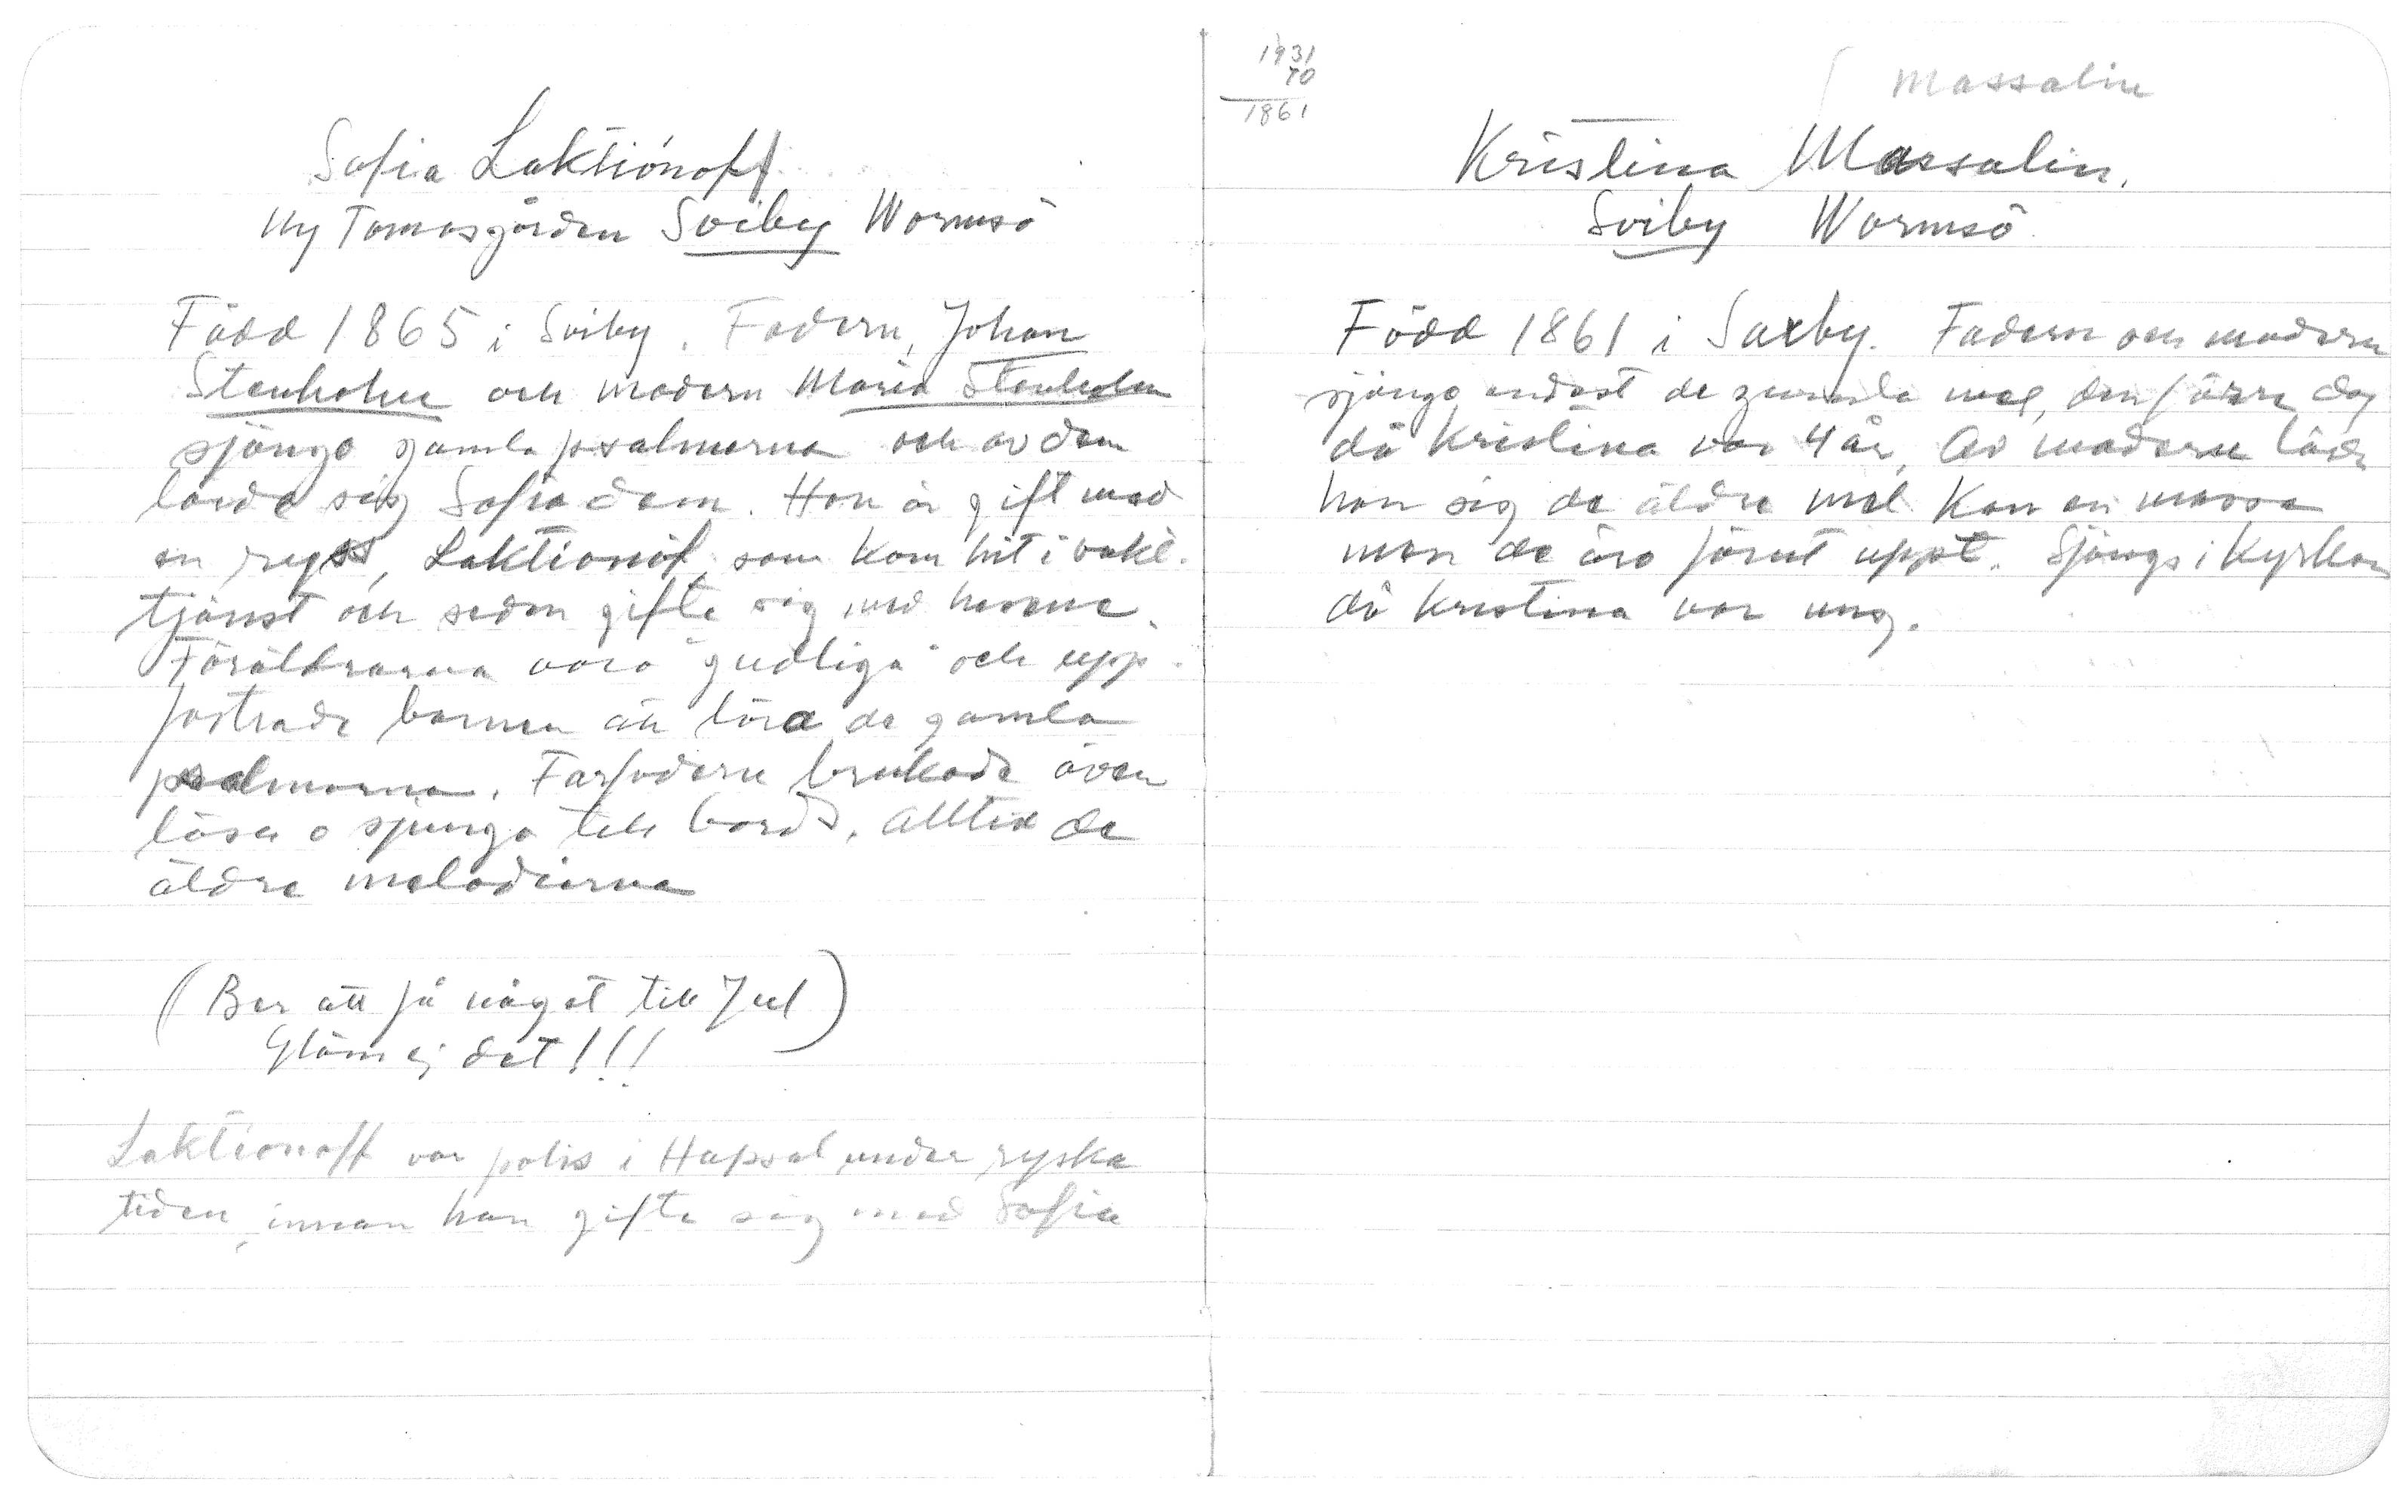 Sofia Laktiónoff
Ny Tomasgården Sviby Wormsö
Född 1865 i Sviby. Fadern, Johan
Stenholm och modern Maria Stenholm
sjöngo gamla psalmerna och av dem
lärde sig Sofia dem. Hon är gift med
en ryss, Laktionóf, som kom hit i
tjänst och sedan gifte sig med henne.
Föräldrarna voro "gudliga" och upp-
fostrade barnen att lära de gamla
psalmerna. Farfadern brukade även
läsa o sjunga till bords. Alltid de
äldre melodierna
(Ber att få något till Jul)
Glöm ej det!!!
Laktionoff var polis i Hapsal under ryska
tiden, innan han gifte sig med Sofia
1931
70
1861
Massalin
Kristina Massalin.
Sviby Wormsö
Född 1861 i Saxby. Fadern och modern
sjöngo endast de gamla mel, den förre dog
då Kristina var 4 år. Av modern lärde
hon sig de äldre mel. Kan en massa
men de äro förut uppt. Sjöngs i Kyrkan
då Kristina var ung.